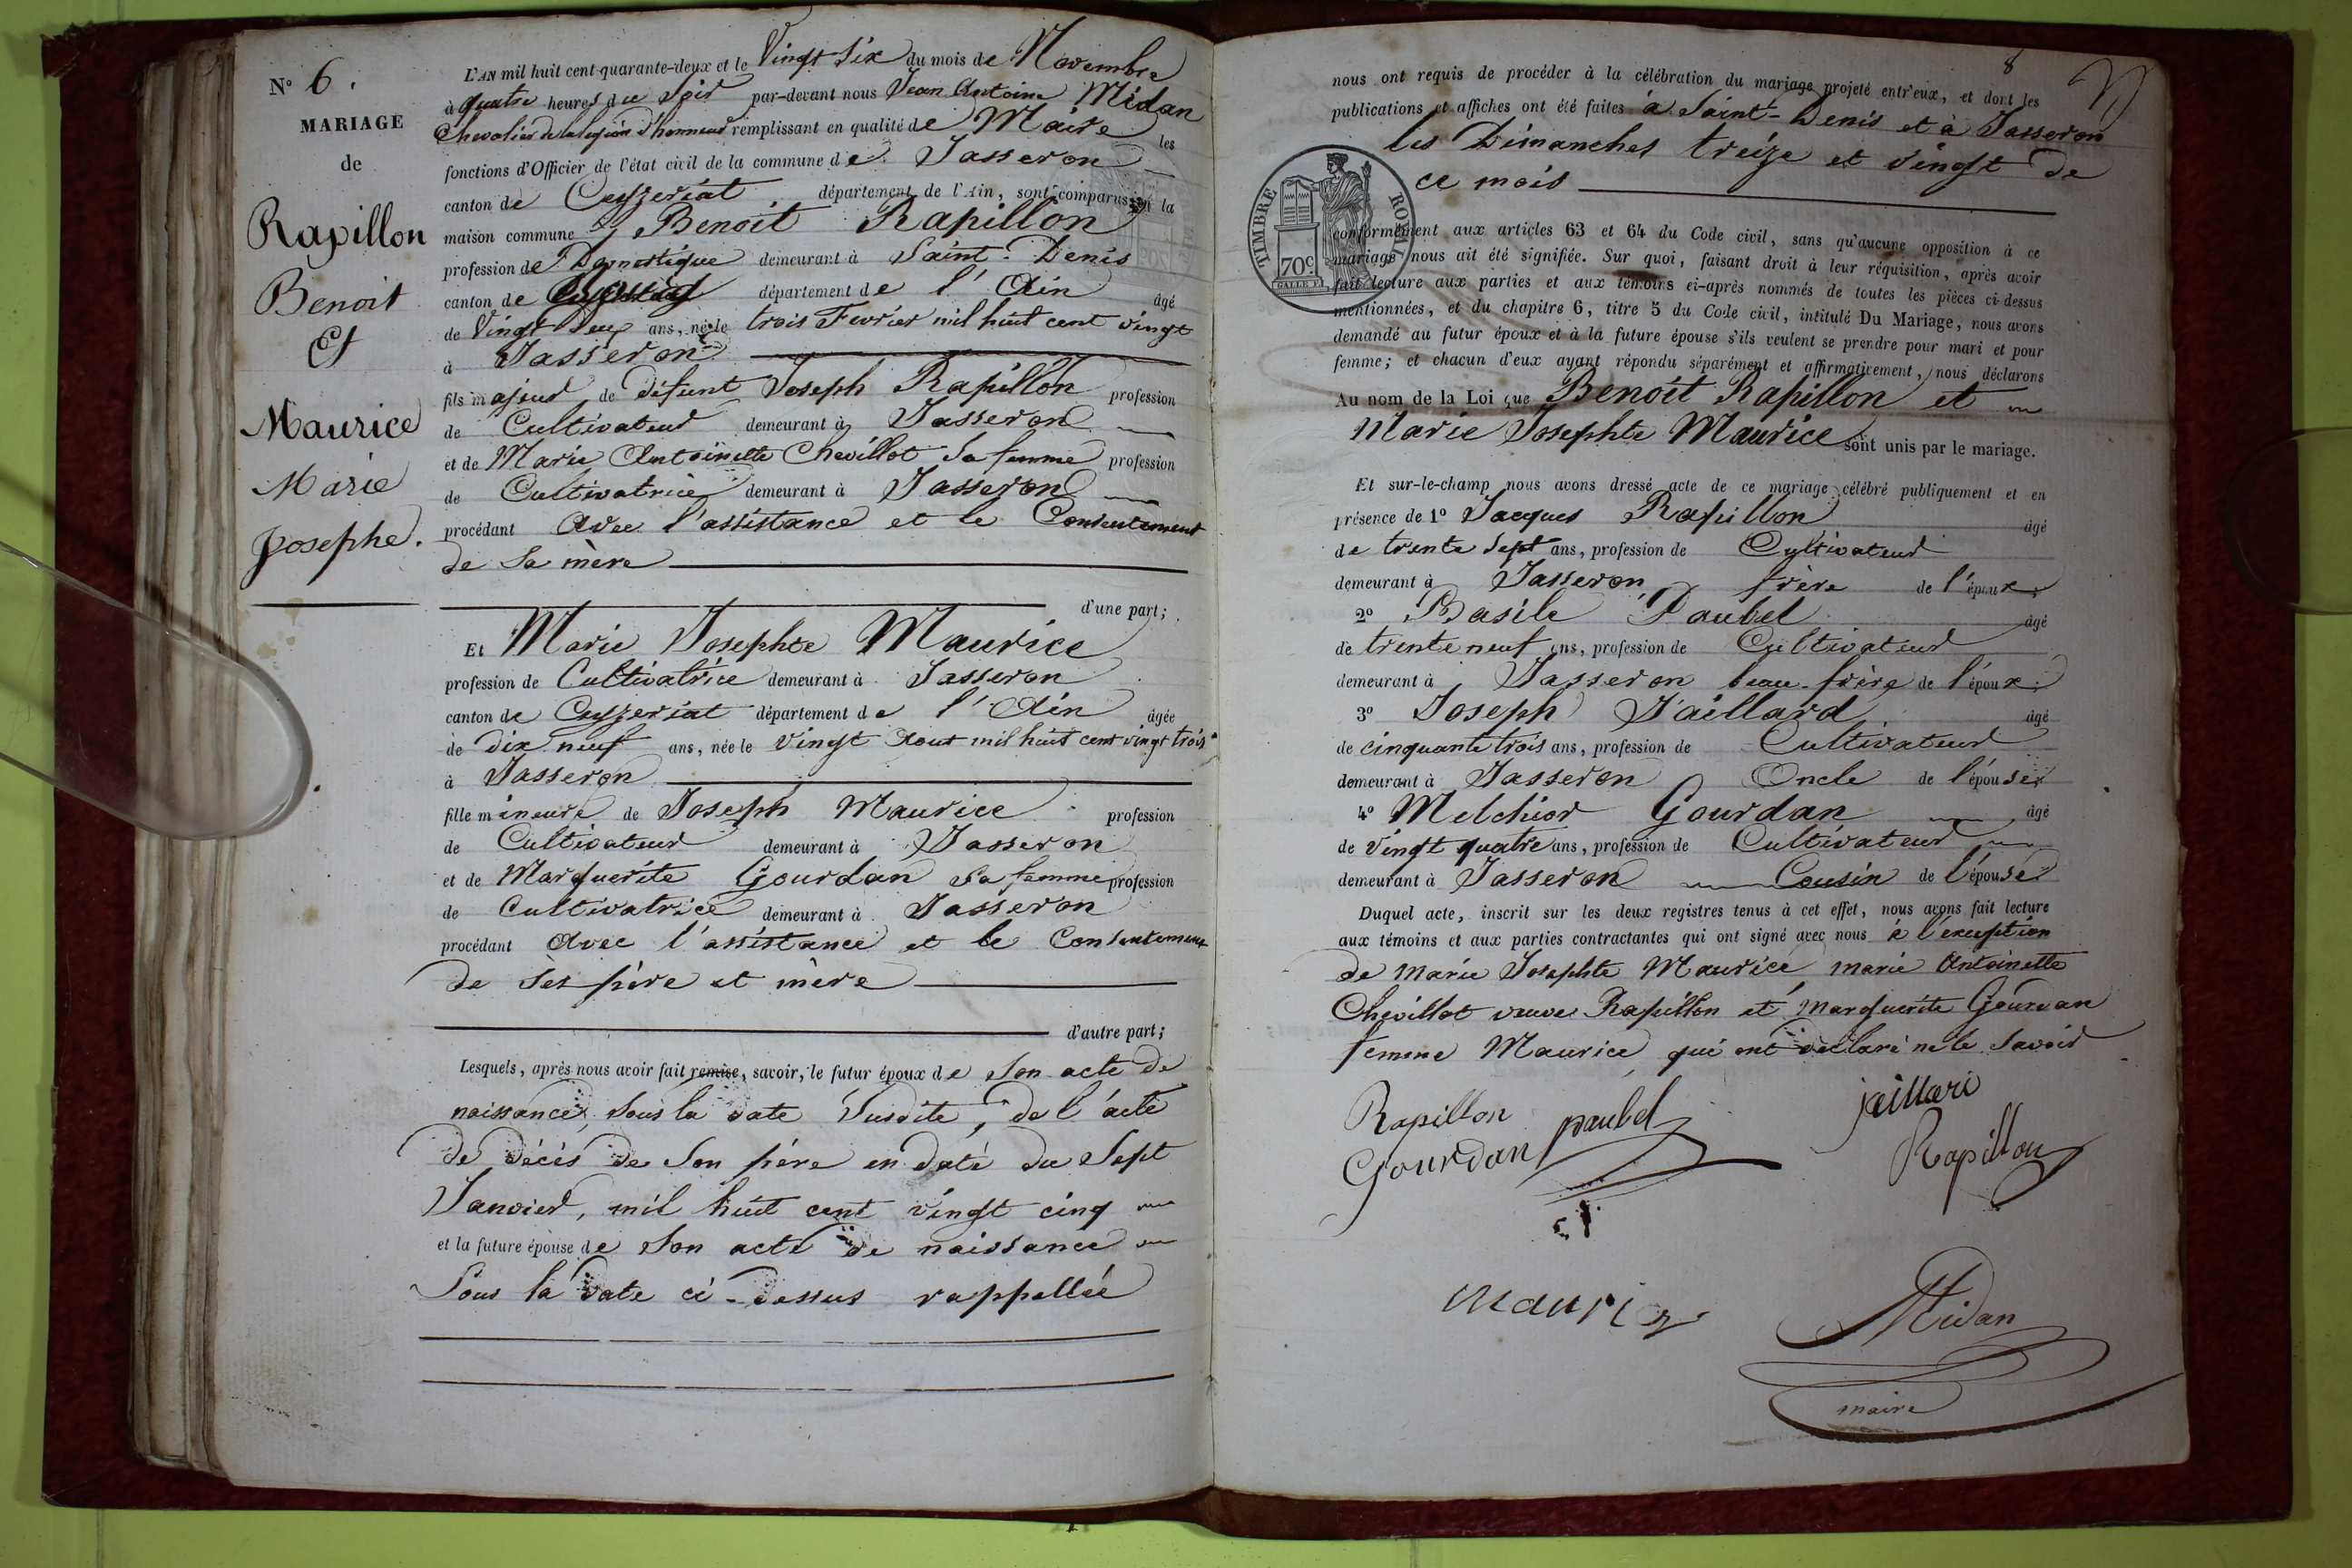 N° 6.
MARIAGE
de
Rapillon
Benoit
Et
Maurice
Marie
Josephe.
L'AN mil huit cent quarante-deux et le Vingt Six du mois de Novembre
à quatre heures du Soir par-devant nous Jean Antoine Midan
Chevalier de la legion d'honneur remplissant en qualité de Maire les
fonctions d'Officier de l'état civil de la commune de Jasseron
canton de Ceyzeriat département de l'Ain, sont comparus en la
maison commune Benoit Rapillon
profession de Domestique demeurant à Saint-Denis
canton de département de l'Ain âgé
de Vingt Deux ans, né le trois Fevrier mil huit cent vingt
à Jasseron
fils majeur de défunt Joseph Rapillon profession
de Cultivateur demeurant à Jasseron
et de Marie Antoinette Chevillot sa femme profession
de Cultivatrice demeurant à Jasseron
procédant avec l'assistance et le Consentement
de sa mère
d'une part;
Et Marie Josephte Maurice
profession de Cultivatrice demeurant à Jasseron
canton de Ceyzeriat département de l'Ain âgée
de dix neuf ans, née le vingt Aout mil huit cent vingt trois
à Jasseron
fille mineure de Joseph Maurice profession
de Cultivateur demeurant à Jasseron
et de Marguerite Gourdan sa femme profession
de Cultivatrice demeurant à Jasseron
procédant avec l'assistance et le Consentement
de ses père et mère
d'autre part;
Lesquels, après nous avoir fait remise, savoir, le futur époux de son acte de
naissance, sous la date susdite, de l'acte
de décès de son père en date du sept
Janvier, mil huit cent vingt cinq
et la future épouse de son acte de naissance
sous la date ci-dessus rappellée
8
nous ont requis de procéder à la célébration du mariage projeté entr'eux, et dont les
publications et affiches ont été faites à Saint-Denis et à Jasseron
les Dimanches treize et vingt de
ce mois
TIMBRE ROYAL
70c
conformément aux articles 63 et 64 du Code civil, sans qu'aucune opposition à ce
mariage nous ait été signifiée. Sur quoi, faisant droit à leur réquisition, après avoir
fait lecture aux parties et aux témoins ci-après nommés de toutes les pièces ci-dessus
mentionnées, et du chapitre 6, titre 5 du Code civil, intitulé Du Mariage, nous avons
demandé au futur époux et à la future épouse s'ils veulent se prendre pour mari et pour
femme; et chacun d'eux ayant répondu séparément et affirmativement, nous déclarons
Au nom de la Loi que Benoit Rapillon et
Marie Josephte Maurice sont unis par le mariage.
Et sur-le-champ nous avons dressé acte de ce mariage célébré publiquement et en
présence de 1° Jacques Rapillon âgé
de trente Sept ans, profession de Cultivateur
demeurant à Jasseron frère de l'époux
2° Basile Paubel âgé
de trente neuf ans, profession de Cultivateur
demeurant à Jasseron beau-frère de l'époux
3° Joseph Jaillard âgé
de cinquante trois ans, profession de Cultivateur
demeurant à Jasseron Oncle de l'épouse
4° Melchior Gourdan âgé
de Vingt quatre ans, profession de Cultivateur
demeurant à Jasseron Cousin de l'épouse
Duquel acte, inscrit sur les deux registres tenus à cet effet, nous avons fait lecture
aux témoins et aux parties contractantes qui ont signé avec nous à l'exeuption
de marie Josephte Maurice marie Antoinette
Chevillot veuve Rapillon et Marguerite Gourdan
femme Maurice qui ont déclaré ne le savoir
Rapillon paubel jaillard
Gourdan Rapillon
maurice
Midan
maire